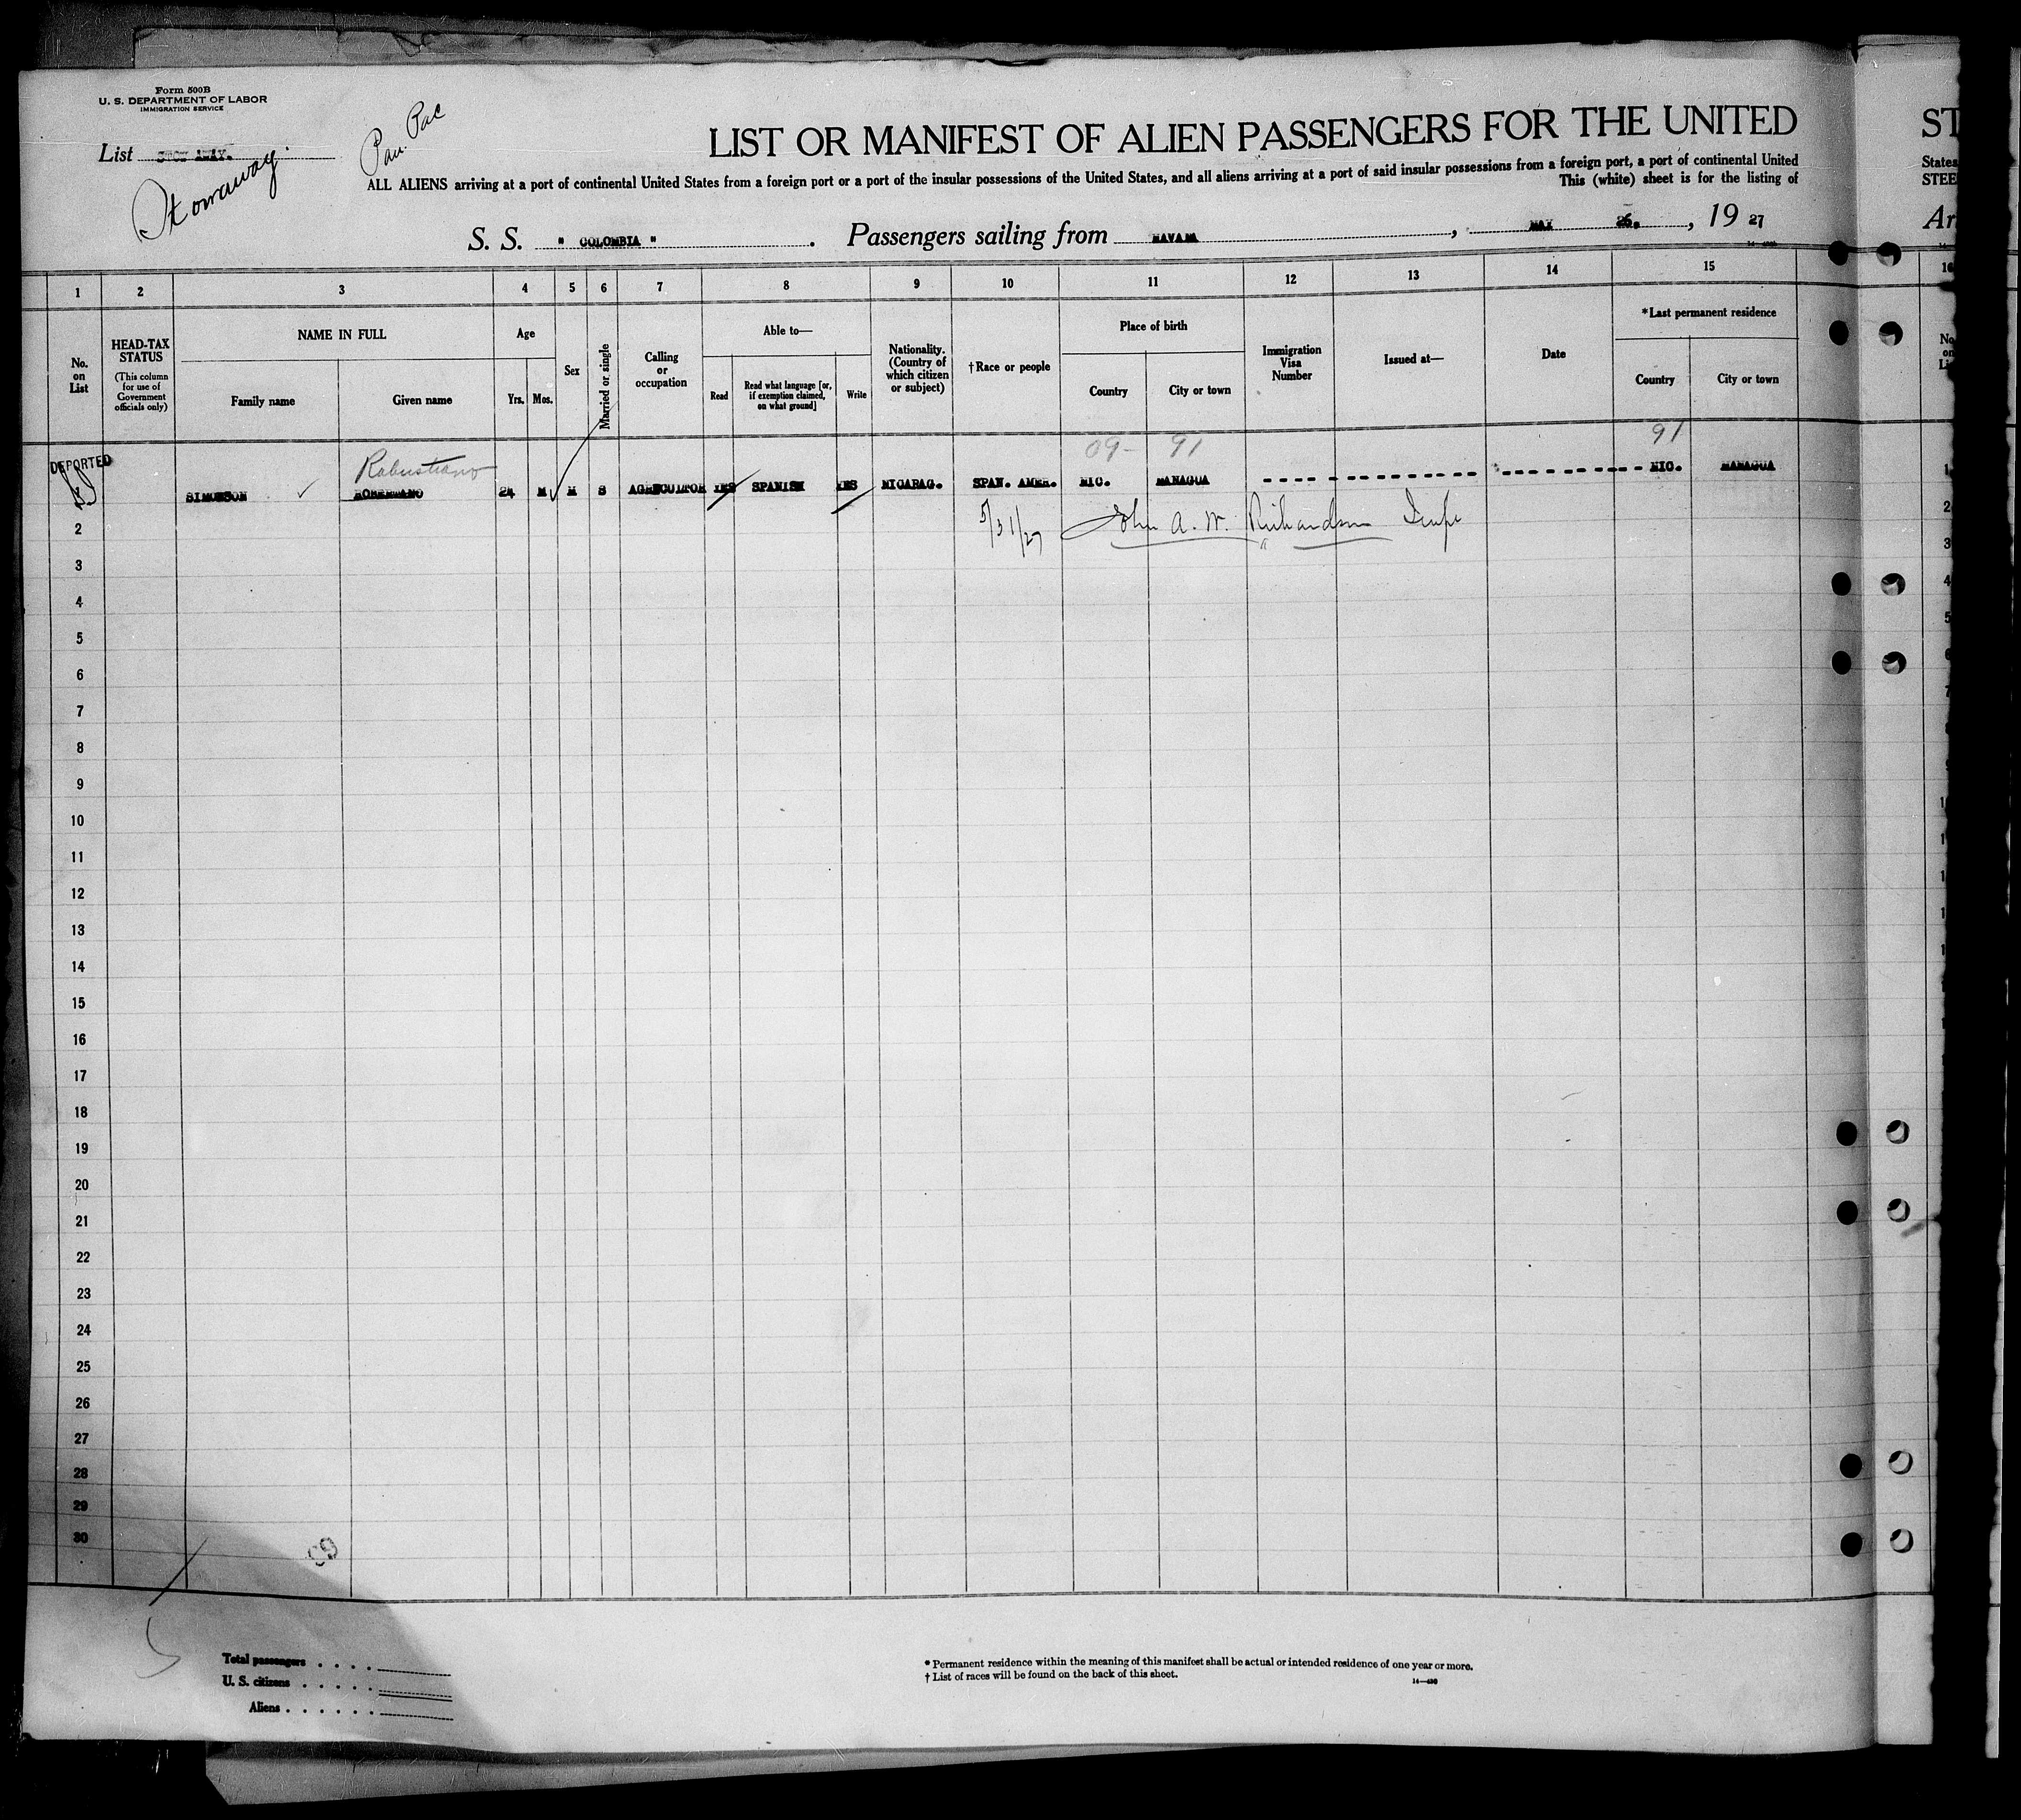 Form 500B
U. S. DEPARTMENT OF LABOR
IMMIGRATION SERVICE
List STOW AWAY.
Stowaway.
Pan. Pac
LIST OR MANIFEST OF ALIEN PASSENGERS FOR THE UNITED
ST
ALL ALIENS arriving at a port of continental United States from a foreign port or a port of the insular possessions of the United States, and all aliens arriving at a port of said insular possessions from a foreign port, a port of continental United
States
This (white) sheet is for the listing of
STEE
S. S. " COLOMBIA " . Passengers sailing from HAVANA , MAY 26. , 19 27
Ar
1 2 3 4 5 6 7 8 9 10 11 12 13 14 15 16
No. on List
HEAD-TAX STATUS
(This column for use of Government officials only)
NAME IN FULL
Family name
Given name
Age
Yrs.
Mos.
Sex
Married or single
Calling or occupation
Able to—
Read
Read what language [or, if exemption claimed, on what ground]
Write
Nationality. (Country of which citizen or subject)
†Race or people
Place of birth
Country
City or town
Immigration Visa Number
Issued at—
Date
*Last permanent residence
Country
City or town
No. on Li
09- 91 91
DEPORTED
Robustiano
1 SIMONSON ROBERTANO 24 M M S AGRICULTOR YES SPANISH YES NICARAG. SPAN. AMER. NIC. MANAGUA NIC. MANAGUA 1
2 5/31/27 John A. W. Richardson 2
3 3
4 4
5 5
6 6
7 7
8
9
10
11
12
13
14
15
16
17
18
19
20
21
22
23
24
25
26
27
28
29
30
Total passengers
U. S. citizens
Aliens
* Permanent residence within the meaning of this manifest shall be actual or intended residence of one year or more.
† List of races will be found on the back of this sheet.